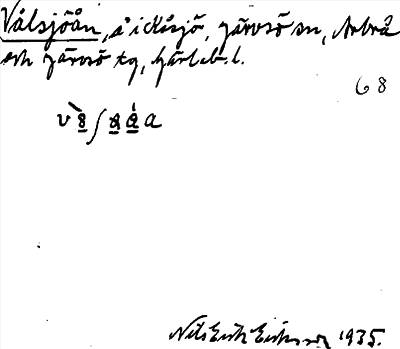 Vålsjöån, å i Idsjö, Järvsö sn, Arbrå
och Järvsö tg, Gävleb. l.
68
Nils Erik Eriksson 1935.